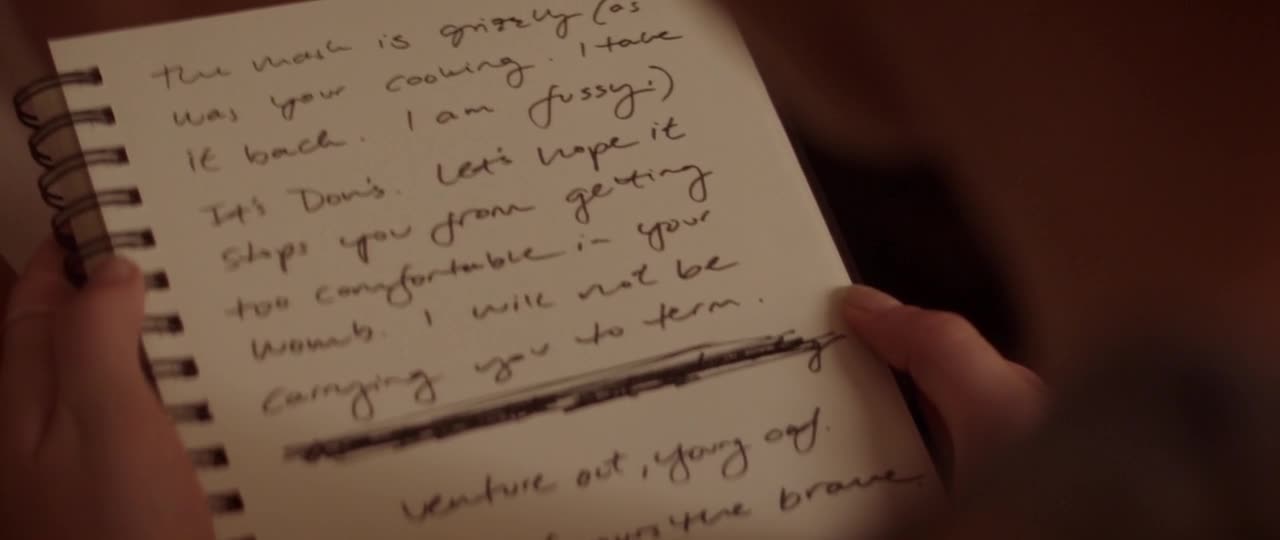 The mask is grizzly (as
was your cooking. I take
it back. I am fussy.)
It's Don's. Let's hope it
stops you from getting
too comfortable in your
womb. I will not be
carrying you to term.
venture out, young oaf.
the brave